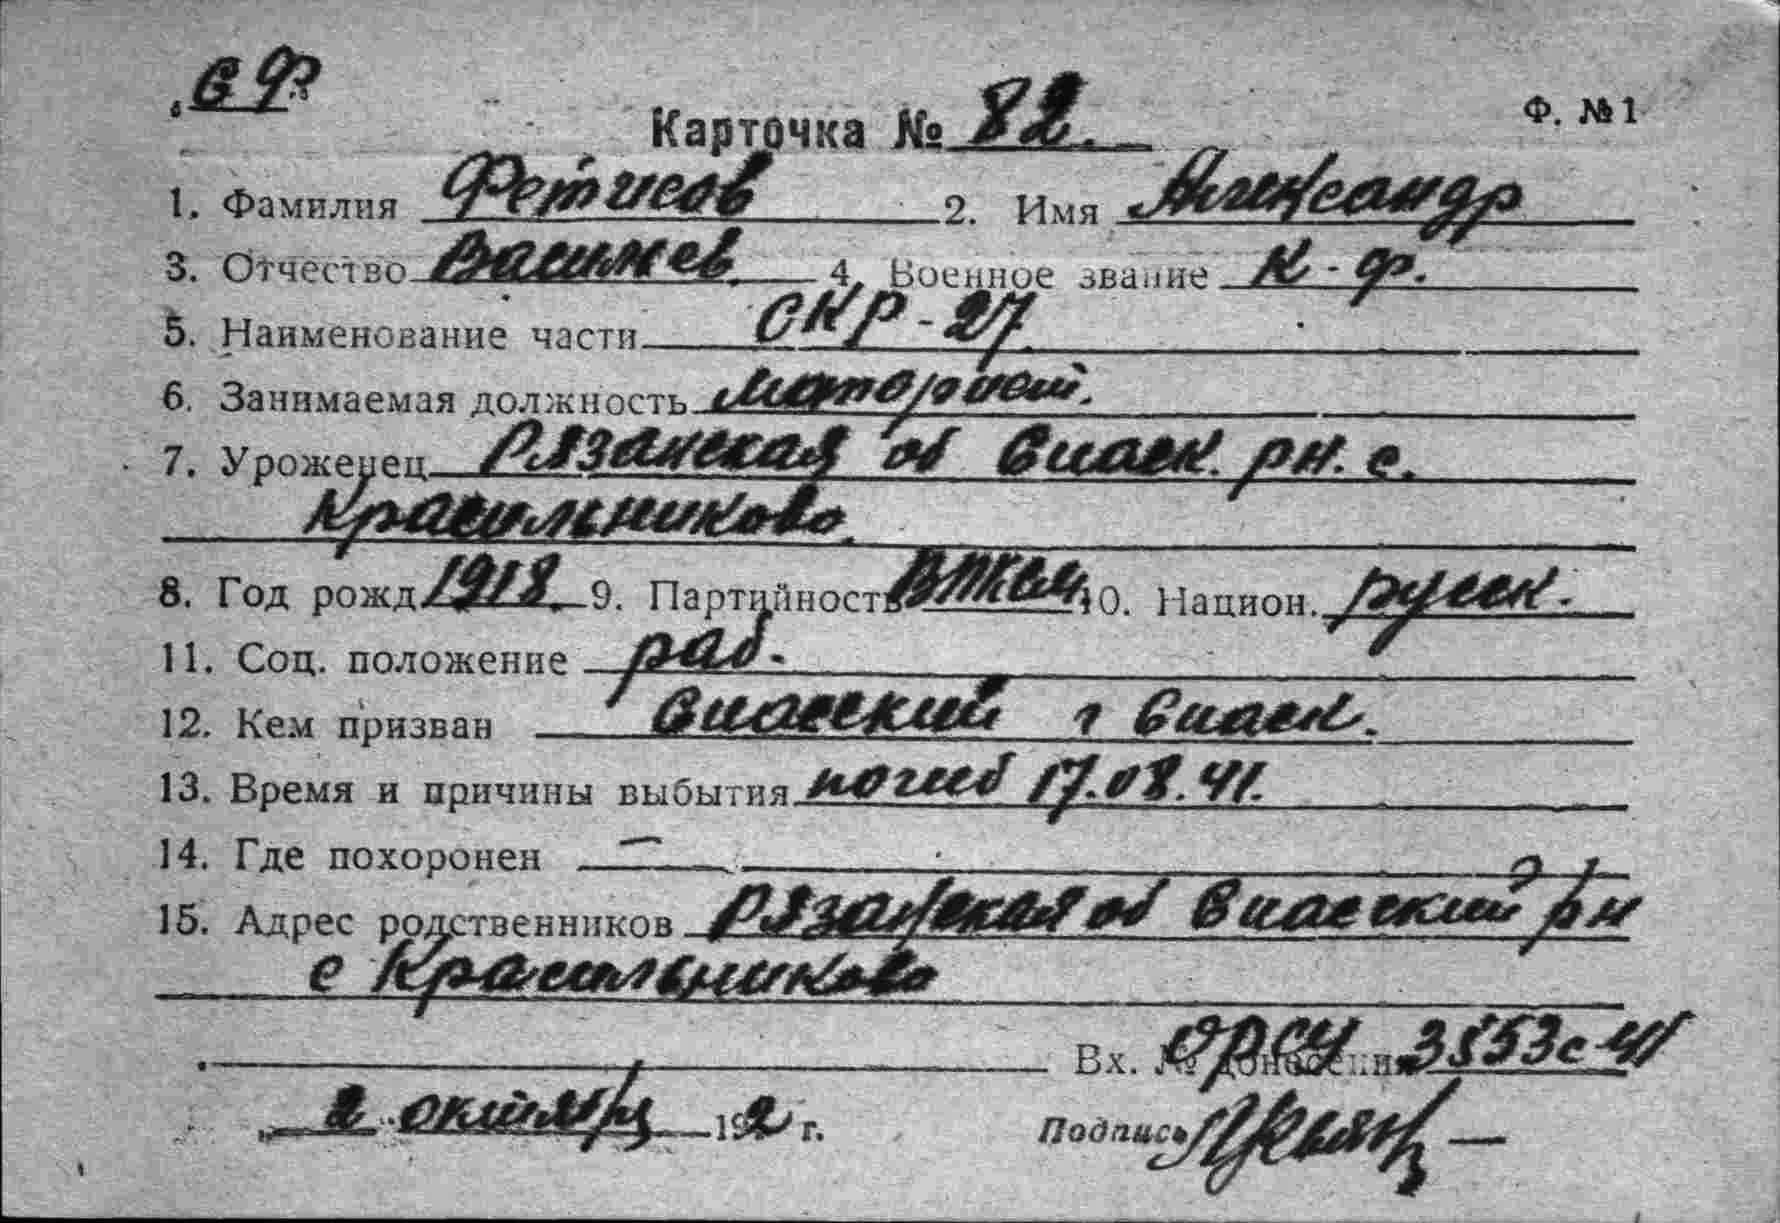 СФ
Карточка № 82.
Ф. №1
1. Фамилия Фетисов 2. Имя Александр
3. Отчество Васильев. 4. Военное звание К-ф.
5. Наименование части СКР-27
6. Занимаемая должность
7. Уроженец Рязанская об Спасск. рн. с.
Красильниково.
8. Год рожд 1918. 9. Партийность ВЛКСМ 10. Национ. русск.
11. Соц. положение раб.
12. Кем призван Спасский г Спасск.
13. Время и причины выбытия погиб 17.08.41.
14. Где похоронен —
15. Адрес родственников Рязанская об Спасский р/н
с Красильниково
Вх. № донесения ОРСУ 3553с-41
„2" октября 192 г. Подпись